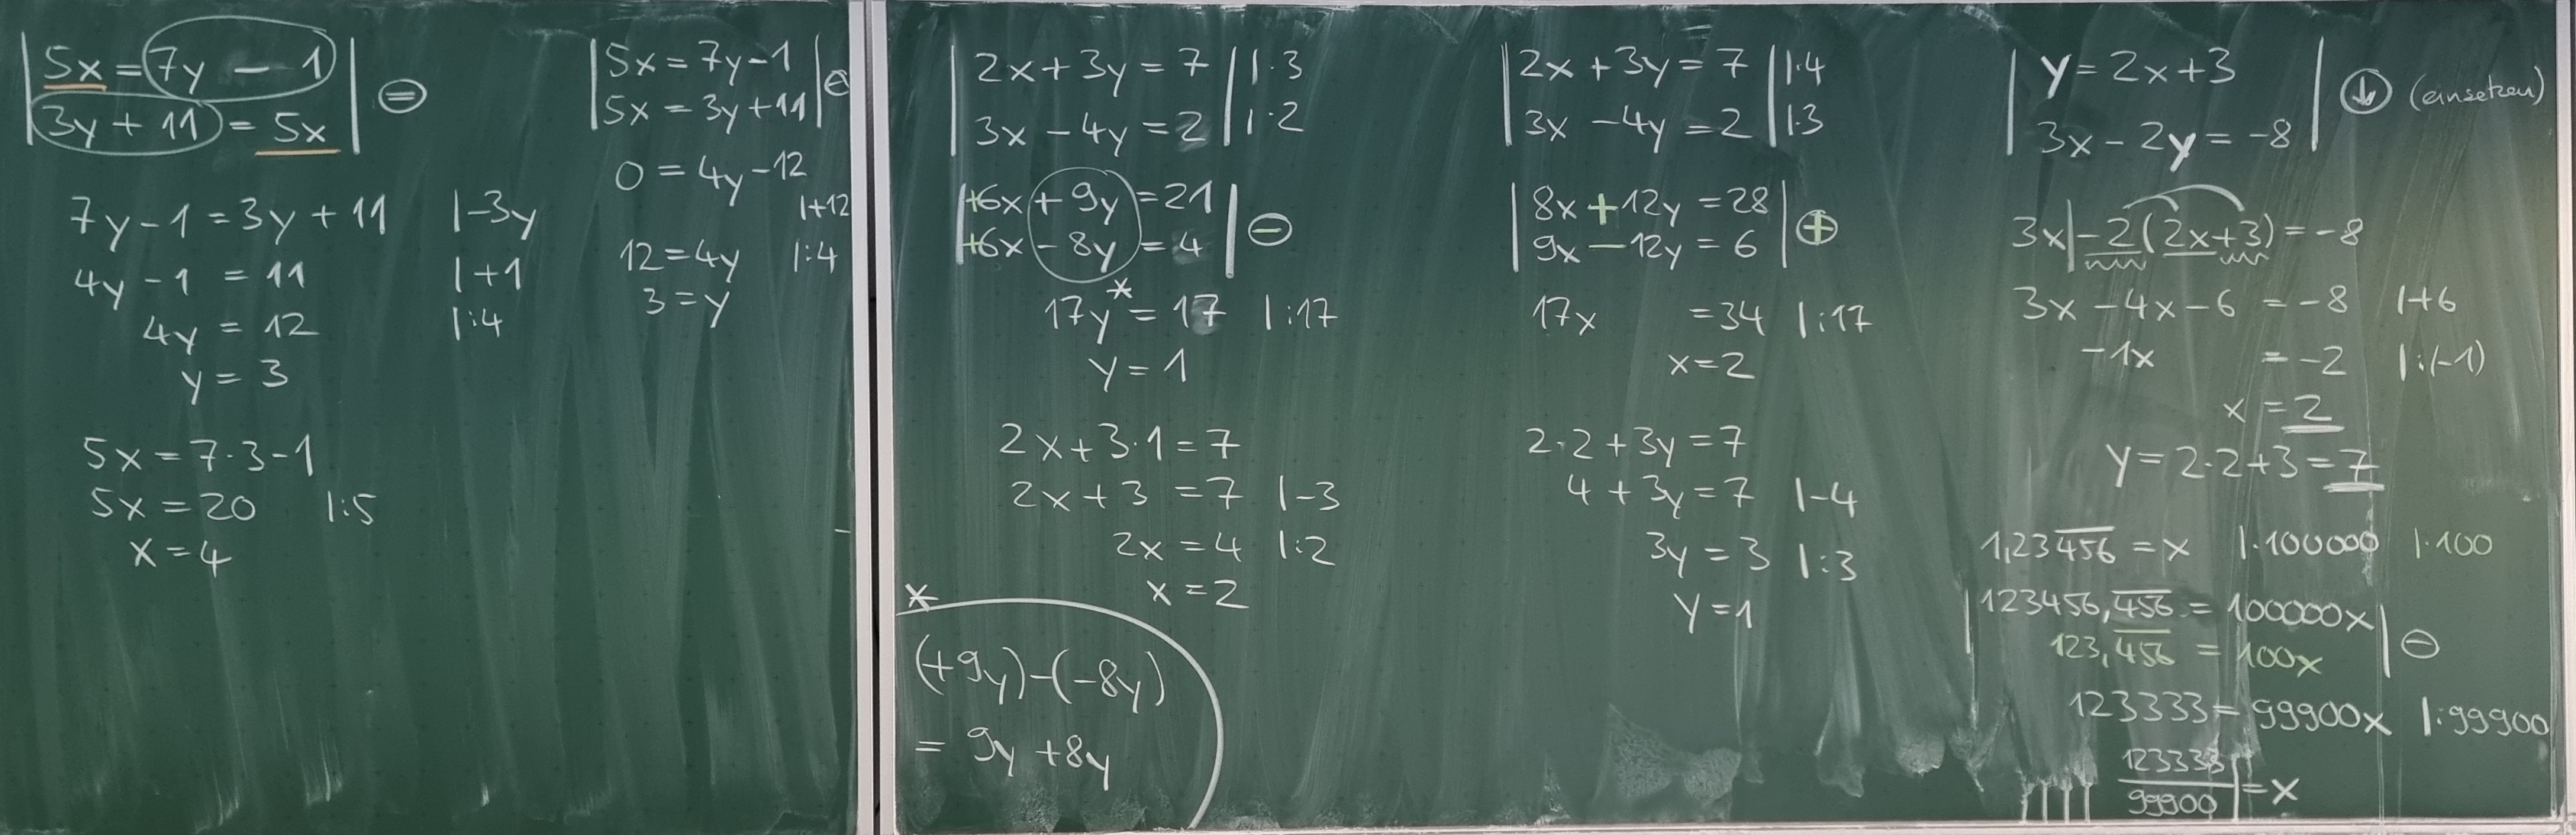 5x = 7y - 1
3y + 11 = 5x
⊜
7y - 1 = 3y + 11 |-3y
4y - 1 = 11 |+1
4y = 12 |:4
y = 3
5x = 7·3-1
5x = 20 |:5
x = 4
5x = 7y-1
5x = 3y+11
⊖
0 = 4y-12
|+12
12 = 4y |:4
3 = y
2x + 3y = 7 |·3
3x - 4y = 2 |·2
+6x + 9y = 21
+6x - 8y = 4
⊖
17y* = 17 |:17
y = 1
2x + 3·1 = 7
2x + 3 = 7 |-3
2x = 4 |:2
x = 2
*
(+9y)-(-8y)
= 9y +8y
2x + 3y = 7 |·4
3x - 4y = 2 |·3
8x + 12y = 28
9x - 12y = 6
⊕
17x = 34 |:17
x = 2
2·2 + 3y = 7
4 + 3y = 7 |-4
3y = 3 |:3
y = 1
y = 2x+3
3x - 2y = -8
(einsetzen)
3x -2(2x+3) = -8
3x - 4x - 6 = -8 |+6
-1x = -2 |:(-1)
x = 2
y = 2·2+3 = 7
1,234̅5̅6̅ = x |·100000 |·100
123456,4̅5̅6̅ = 100000x
123,4̅5̅6̅ = 100x
⊖
123333 = 99900x |:99900
123333/99900 = x